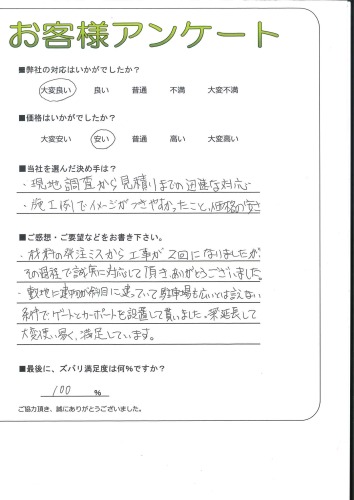 お客様アンケート
■弊社の対応はいかがでしたか？
大変良い 良い 普通 不満 大変不満
■価格はいかがでしたか？
大変安い 安い 普通 高い 大変高い
■当社を選んだ決め手は？
・現地調査から見積りまでの迅速な対応
・施工例でイメージがつきやすかったこと、価格の安さ
■ご感想・ご要望などをお書き下さい。
・材料の発注ミスから工事が2回になりましたが
その過程で誠実に対応して頂きありがとうございました。
・敷地に建物が斜めに建っていて駐車場も広いとは言えない
条件でゲートとカーポートを設置して貰いました。梁延長して
大変使い易く、満足しています。
■最後に、ズバリ満足度は何％ですか？
100 ％
ご協力頂き、誠にありがとうございました。